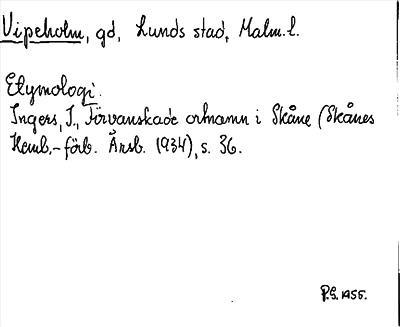 Vipeholm, gd, Lunds stad, Malm. l.
Etymologi.
Ingers, I., Förvanskade ortnamn i Skåne (Skånes
Hemb.-förb. Årsb. 1934), s. 36.
P.G. 1955.